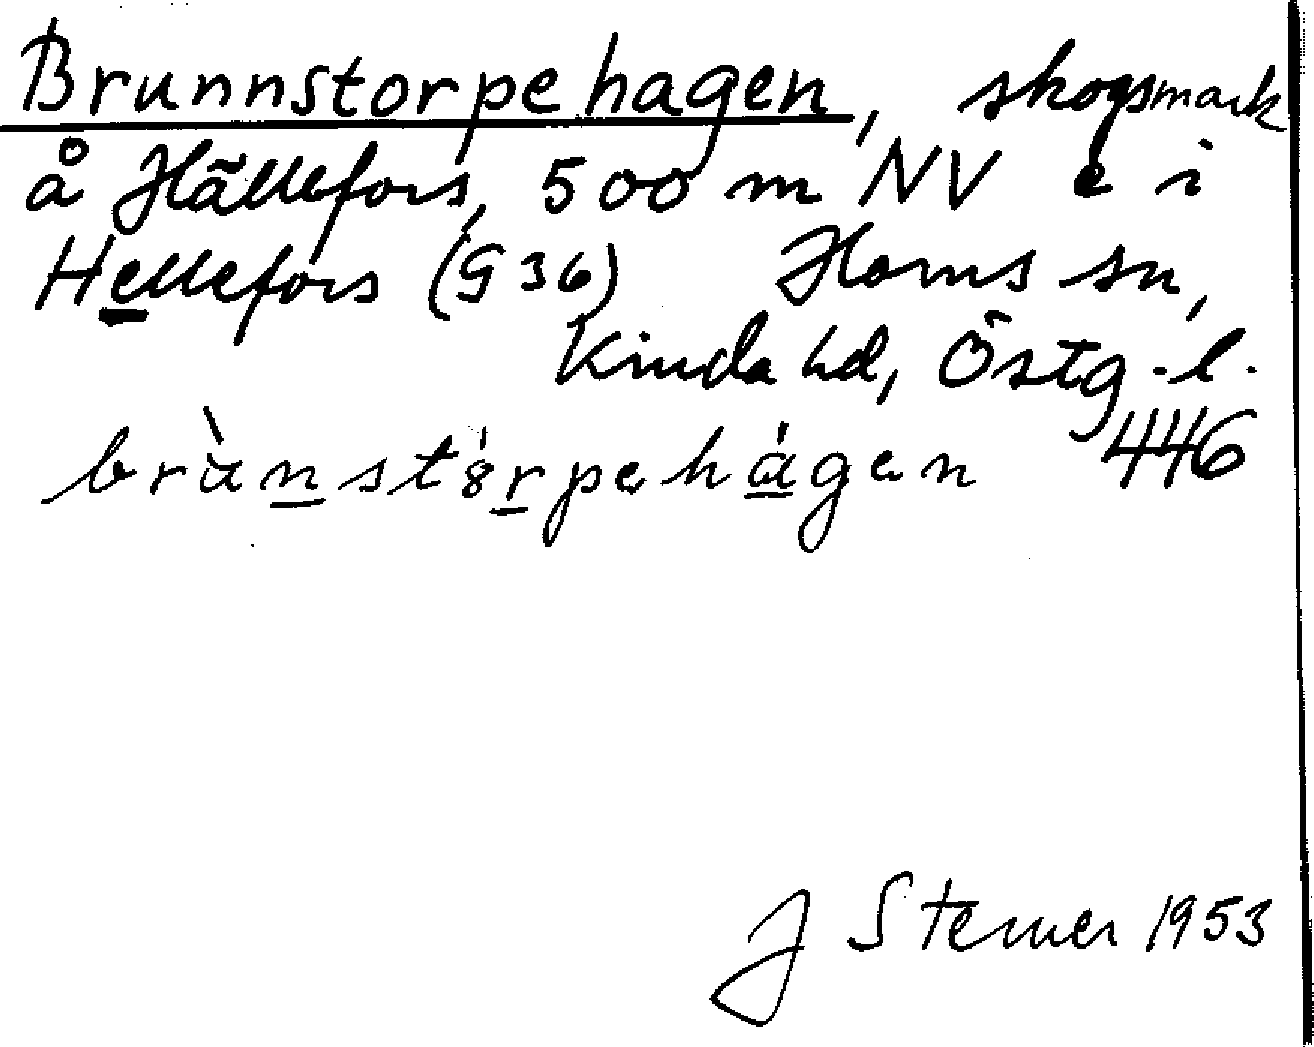 Brunnstorpehagen, skogsmark
å Hällefors, 500 m NV e i
Hellefors (G 36) Horns sn,
Kinda hd, Östg.l.
446
brùnst8́rpehágen
J Sterner 1953